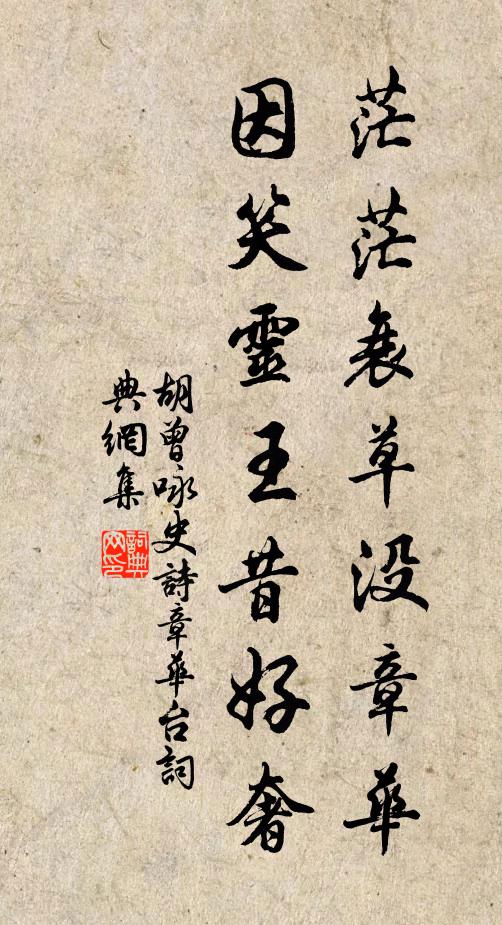 茫茫衰草没章華
因笑靈王昔好奢
胡曾咏史詩章華台詞
典網集
詞典
网印